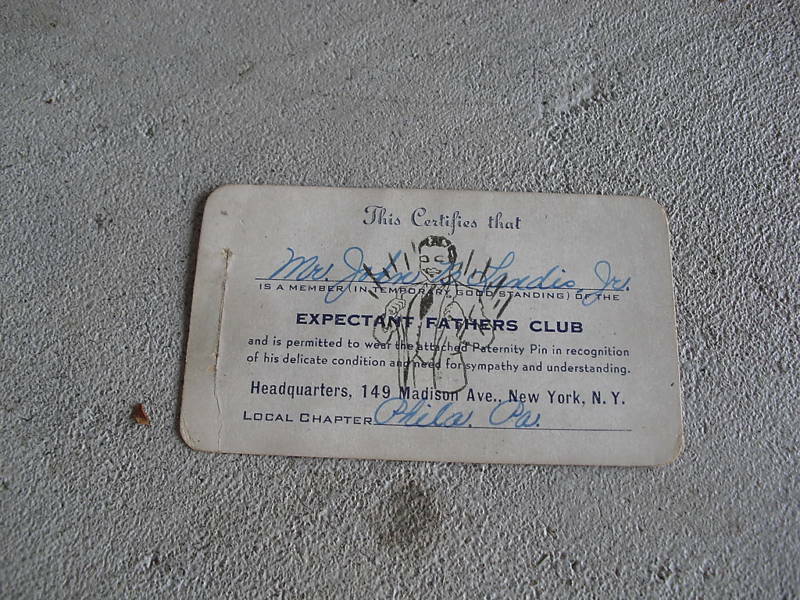 This Certifies that
Mr. John B. Landis, Jr.
IS A MEMBER (IN TEMPORARY GOOD STANDING) OF THE
EXPECTANT FATHERS CLUB
and is permitted to wear the attached Paternity Pin in recognition
of his delicate condition and need for sympathy and understanding.
Headquarters, 149 Madison Ave., New York, N. Y.
LOCAL CHAPTER Phila. Pa.